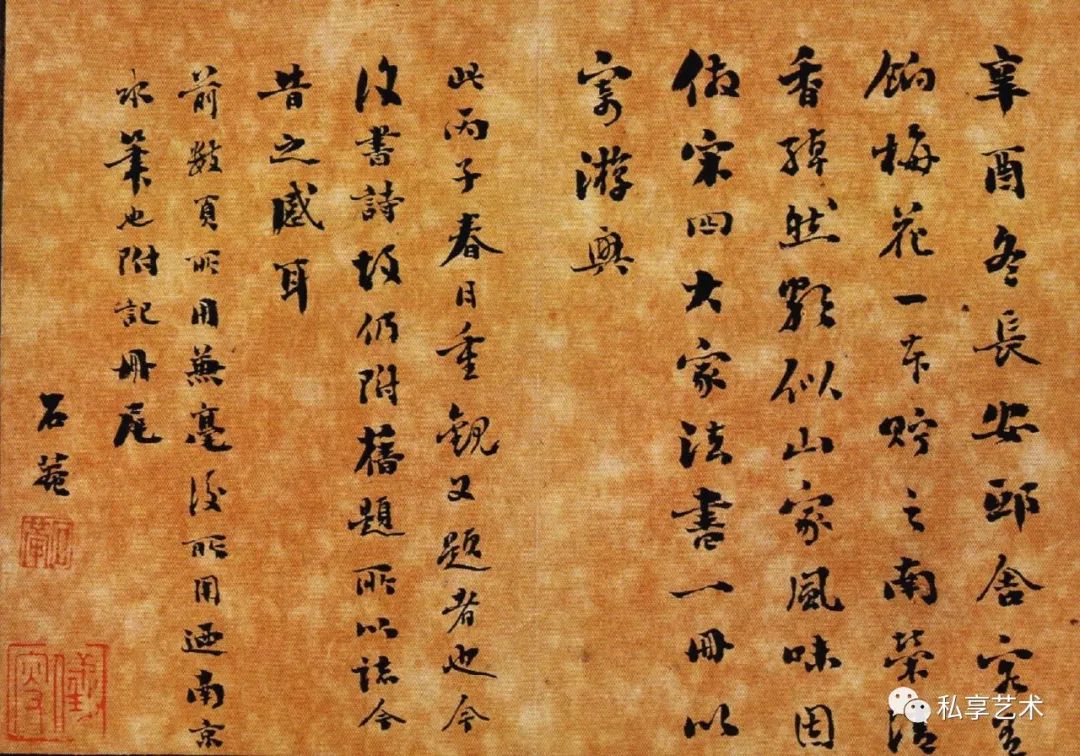 辛酉冬長安邸舍客有
餉梅花一本貯之南榮清
香綽然頗似山家風味因
倣宋四大家法書一冊以
寄游興
此丙子春日重觀又題者也今
復書詩故仍附舊題所以誌今
昔之感耳
前數頁所用兼毫後所用迺南京
水筆也附記冊尾
石菴
私享艺术